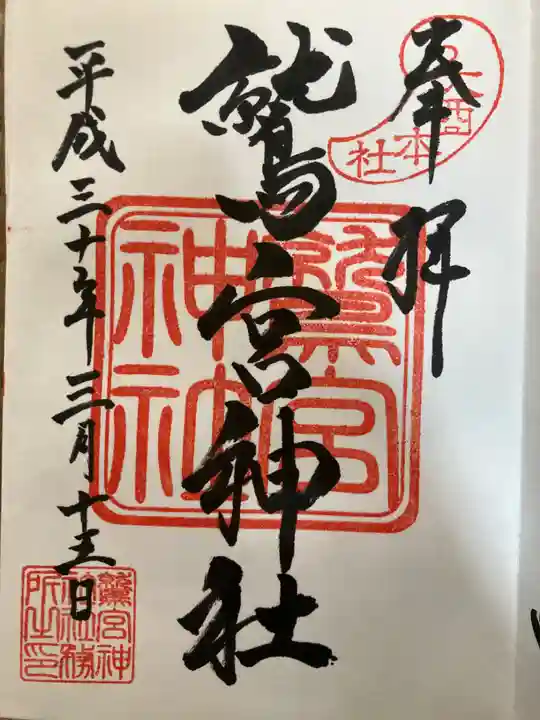 奉拝
酉
本社
鷲宮神社
鷲宮
神社
平成三十年三月十三日
鷲宮神
社社務
所之印